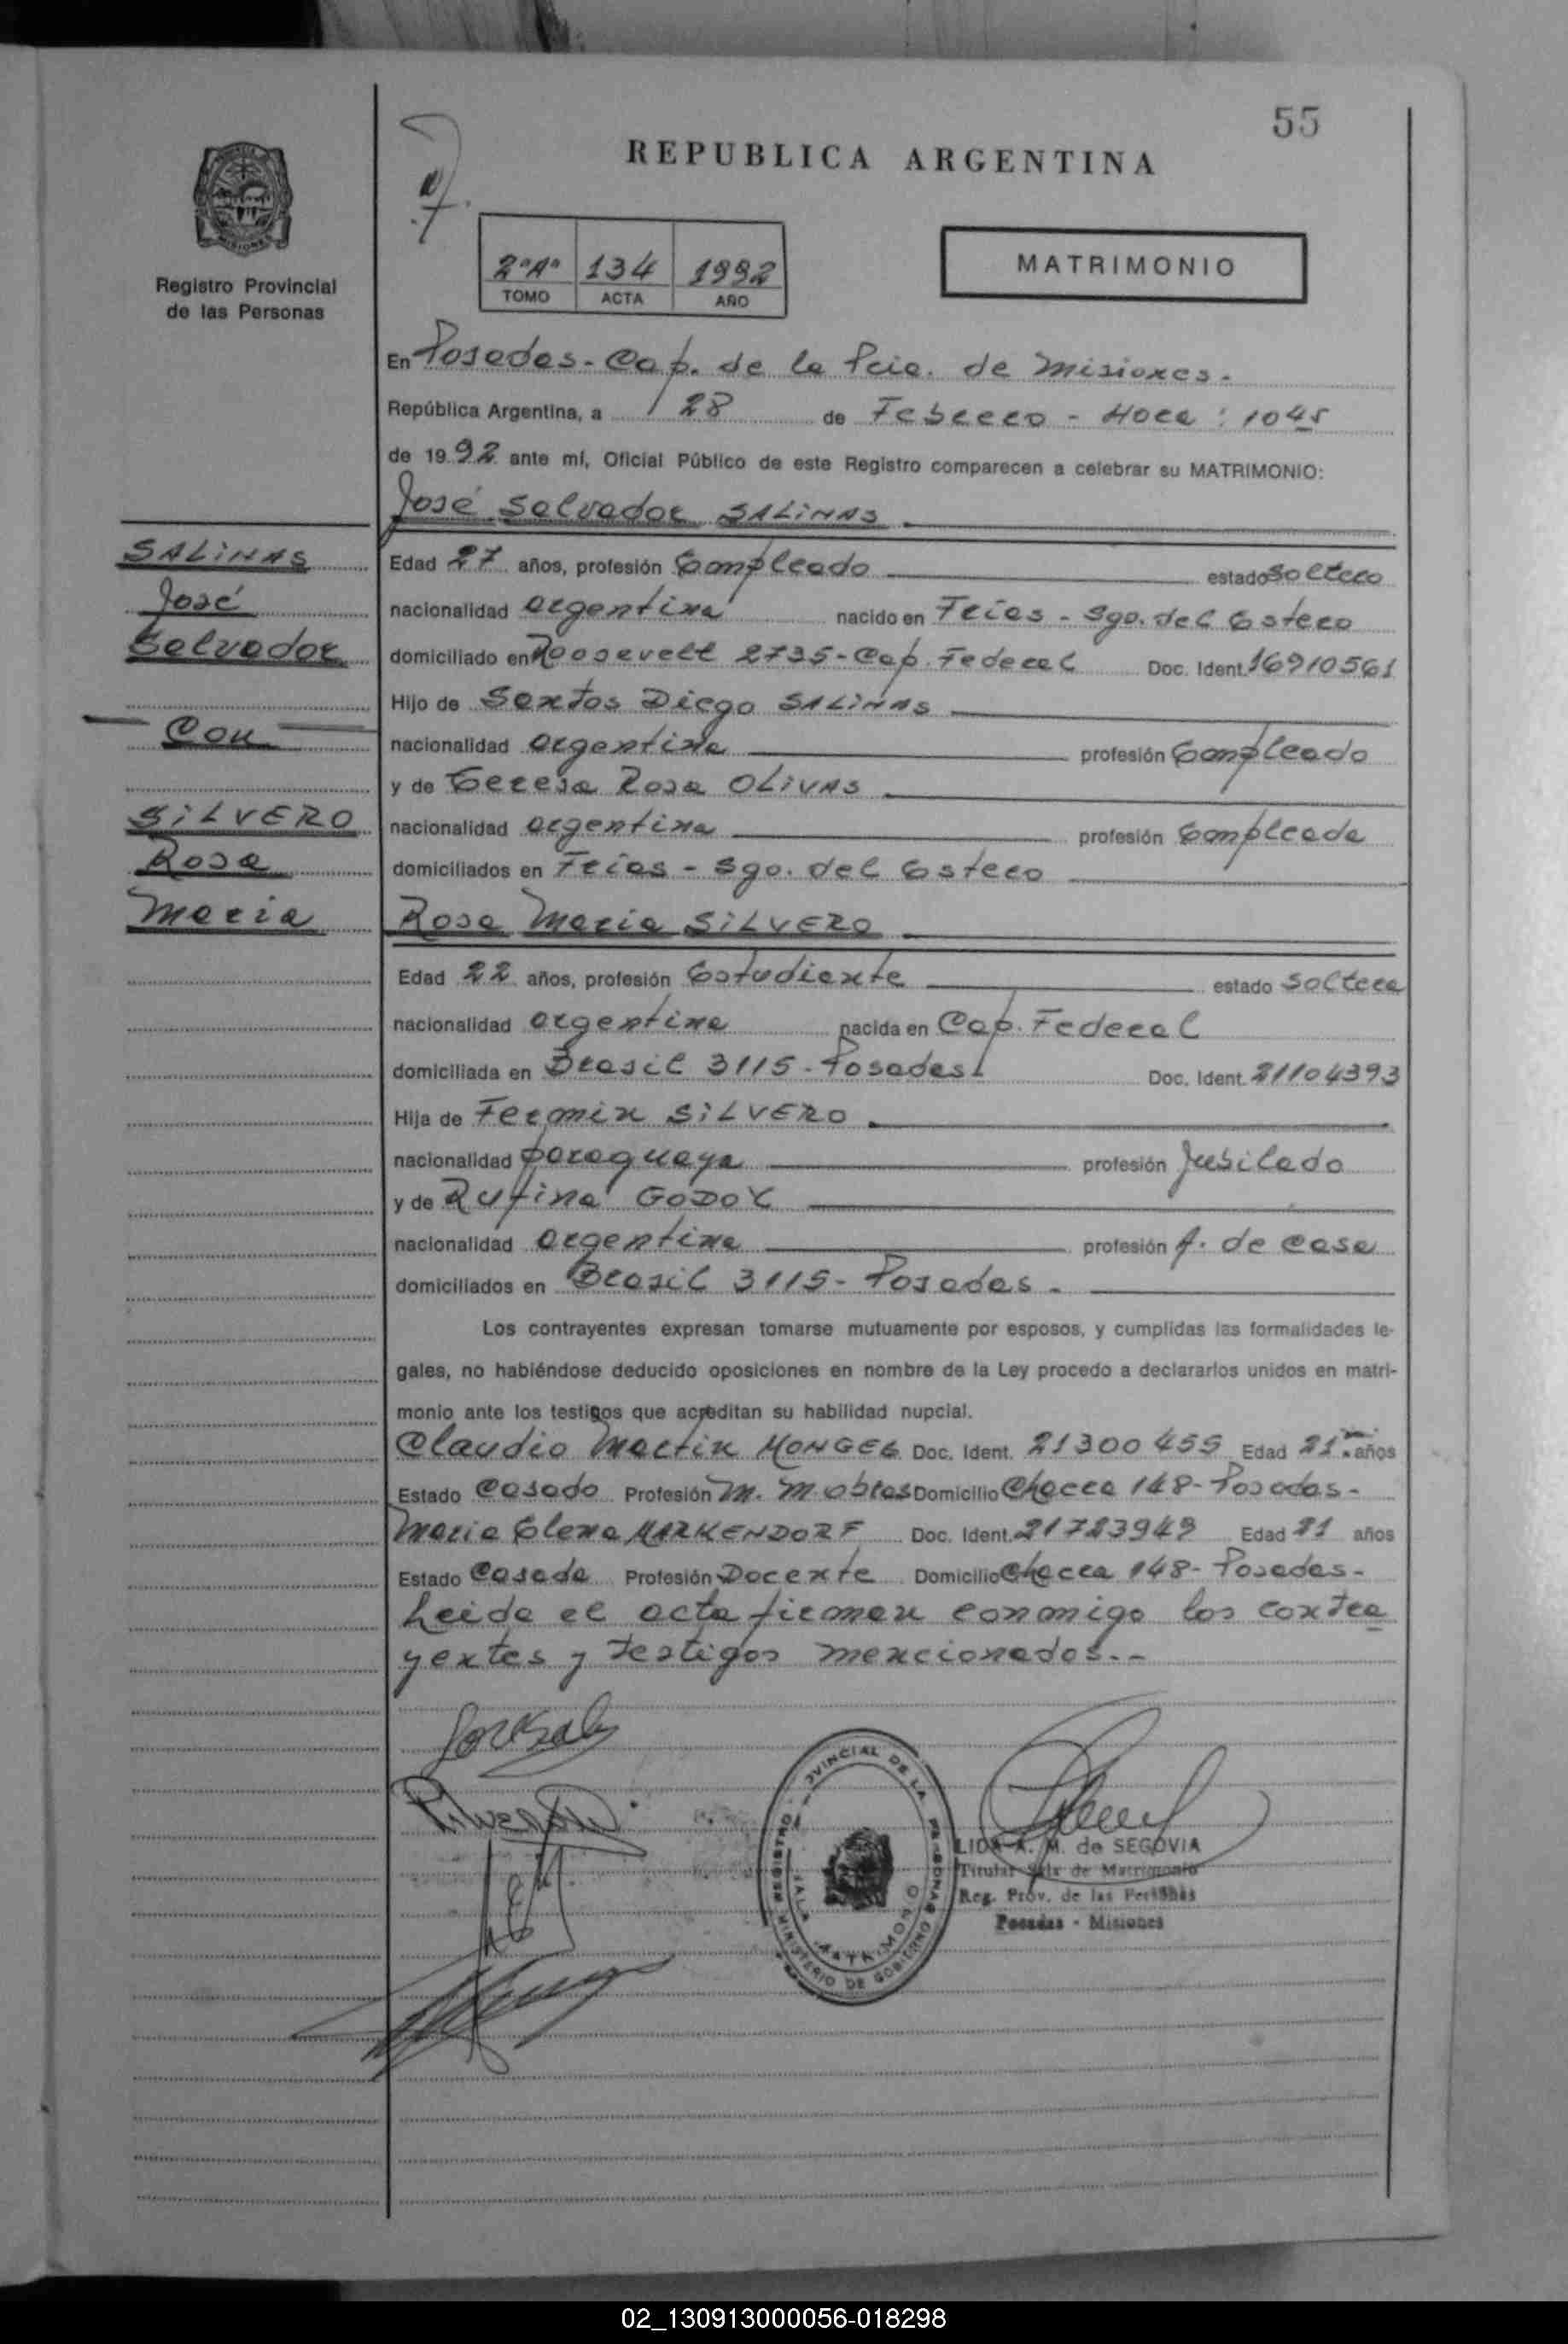 55
REPUBLICA ARGENTINA
Registro Provincial
de las Personas
2º "A" 134 1992
TOMO ACTA AÑO
MATRIMONIO
En Posadas - Cap. de la Pcia. de Misiones.
República Argentina, a 28 de Febrero - Hora: 1045
de 1992 ante mí, Oficial Público de este Registro comparecen a celebrar su MATRIMONIO:
José Salvador SALINAS
SALINAS
José
Salvador
Con
SILVERO
Rosa
Maria
Edad 27 años, profesión Empleado estado Soltero
nacionalidad argentina nacido en Frías - Sgo. del Estero
domiciliado en Roosevelt 2735 - Cap. Federal Doc. Ident. 16910561
Hijo de Santos Diego SALINAS
nacionalidad argentina profesión Empleado
y de Teresa Rosa OLIVAS
nacionalidad argentina profesión Empleada
domiciliados en Frías - Sgo. del Estero
Rosa Maria SILVERO
Edad 22 años, profesión Estudiante estado Soltera
nacionalidad argentina nacida en Cap. Federal
domiciliada en Brasil 3115 - Posadas Doc. Ident. 21104393
Hija de Fermin SILVERO
nacionalidad paraguaya profesión Jubilado
y de Rufina GODOY
nacionalidad argentina profesión A. de casa
domiciliados en Brasil 3115 - Posadas -
Los contrayentes expresan tomarse mutuamente por esposos, y cumplidas las formalidades le-
gales, no habiéndose deducido oposiciones en nombre de la Ley procedo a declararlos unidos en matri-
monio ante los testigos que acreditan su habilidad nupcial.
Claudio Martin MONGES Doc. Ident. 21300455 Edad 21 años
Estado Casado Profesión M. M. obras Domicilio Chacra 148 - Posadas -
Maria Elena MARKENDORF Doc. Ident. 21723949 Edad 21 años
Estado Casada Profesión Docente Domicilio Chacra 148 - Posadas -
Leida el acta firman conmigo los contra
yentes y testigos mencionados.-
REGISTRO PROVINCIAL DE LAS PERSONAS
MINISTERIO DE GOBIERNO
SALA MATRIMONIO
LIDA A. M. de SEGOVIA
Titular Sala de Matrimonio
Reg. Prov. de las Personas
Posadas - Misiones
02_130913000056-018298